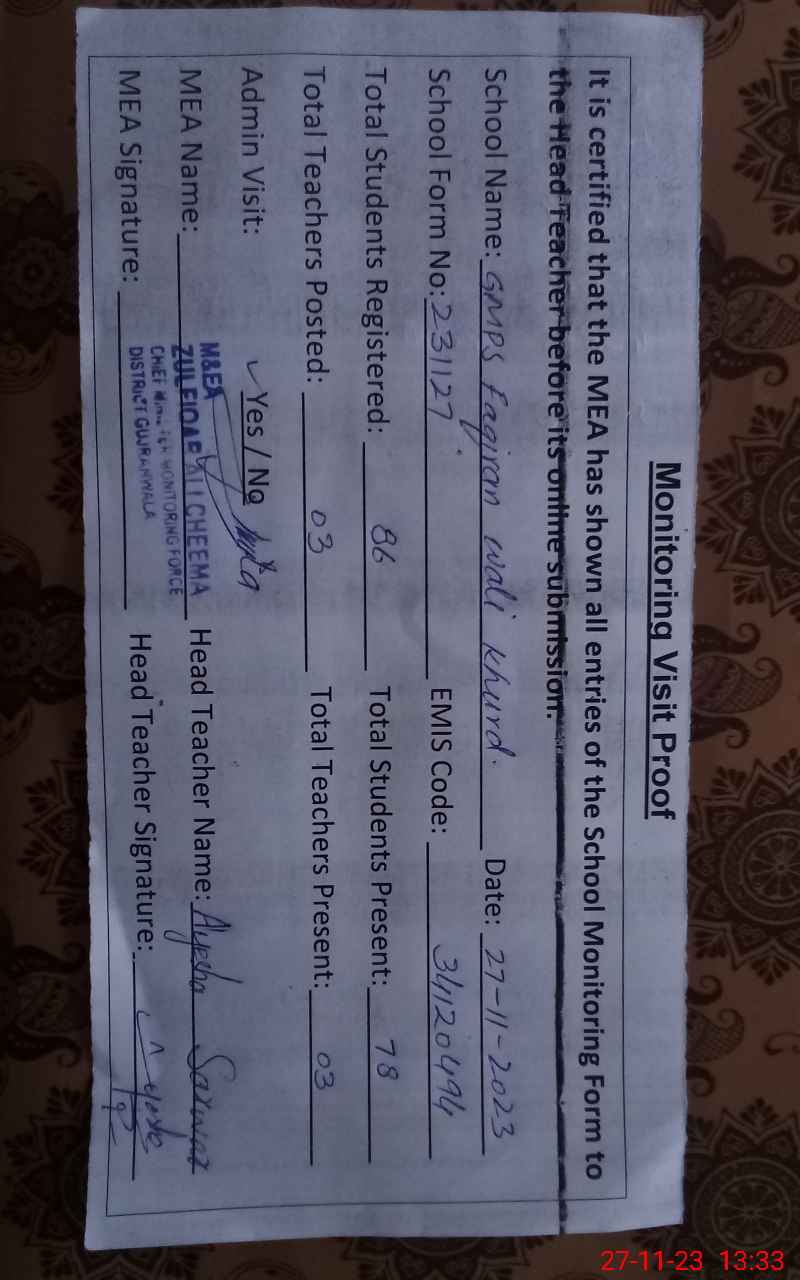 Monitoring Visit Proof
It is certified that the MEA has shown all entries of the School Monitoring Form to
the Head Teacher before its online submission.
School Name: GMPS Faqiran wali khurd. Date: 27-11-2023
School Form No: 231127 EMIS Code: 34120494
Total Students Registered: 86 Total Students Present: 78
Total Teachers Posted: 03 Total Teachers Present: 03
Admin Visit: ✓ Yes / No
M&EA
MEA Name: ZULFIQAR ALI CHEEMA Head Teacher Name: Ayesha Sarwar
CHIEF MINISTER MONITORING FORCE
MEA Signature: DISTRICT GUJRANWALA Head Teacher Signature: Ayesha
27-11-23 13:33